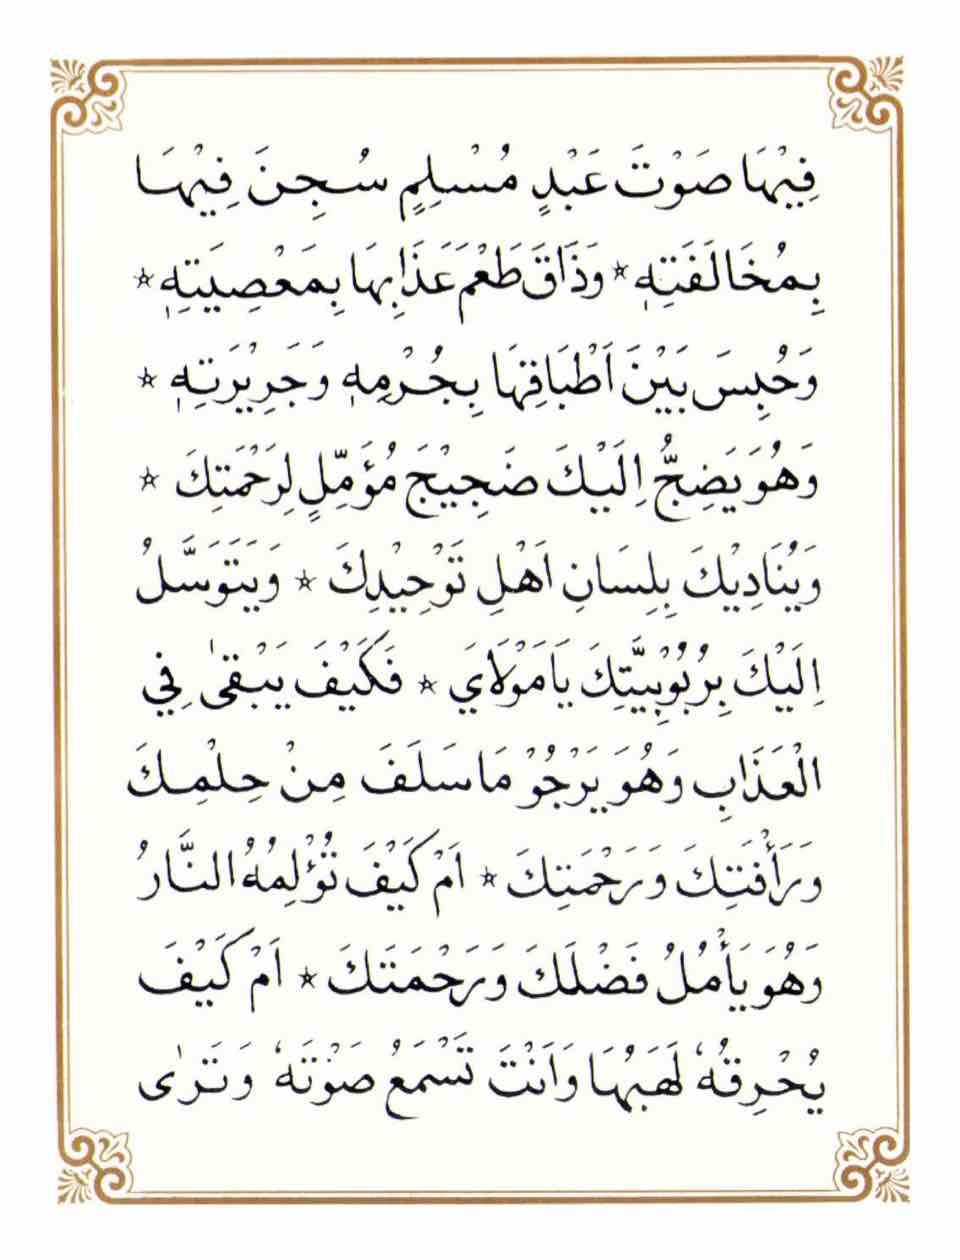 فِيْهَا صَوْتَ عَبْدٍ مُسْلِمٍ سُجِنَ فِيْهَا
بِمُخَالَفَتِهٖ ☆ وَذَاقَ طَعْمَ عَذَابِهَا بِمَعْصِيَتِهٖ ☆
وَحُبِسَ بَيْنَ اَطْبَاقِهَا بِجُرْمِهٖ وَجَرِيْرَتِهٖ ☆
وَهُوَ يَضِجُّ اِلَيْكَ ضَجِيْجَ مُؤَمِّلٍ لِرَحْمَتِكَ ☆
وَيُنَادِيْكَ بِلِسَانِ اَهْلِ تَوْحِيْدِكَ ☆ وَيَتَوَسَّلُ
اِلَيْكَ بِرُبُوْبِيَّتِكَ يَا مَوْلَايَ ☆ فَكَيْفَ يَبْقٰى فِي
الْعَذَابِ وَهُوَ يَرْجُوْ مَا سَلَفَ مِنْ حِلْمِكَ
وَرَأْفَتِكَ وَرَحْمَتِكَ ☆ اَمْ كَيْفَ تُؤْلِمُهُ النَّارُ
وَهُوَ يَأْمُلُ فَضْلَكَ وَرَحْمَتَكَ ☆ اَمْ كَيْفَ
يُحْرِقُهٗ لَهَبُهَا وَاَنْتَ تَسْمَعُ صَوْتَهٗ وَتَرٰى